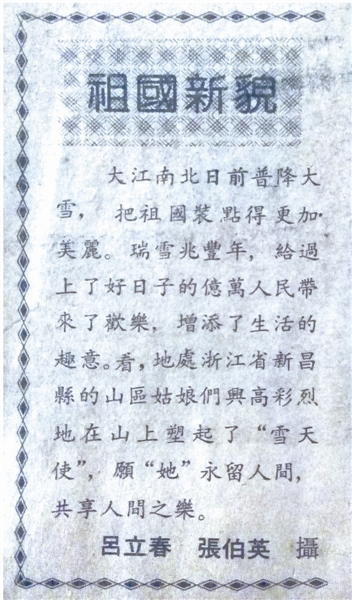 祖國新貌
大江南北日前普降大
雪，把祖國裝點得更加
美麗。瑞雪兆豐年，給過
上了好日子的億萬人民帶
來了歡樂，增添了生活的
趣意。看，地處浙江省新昌
縣的山區姑娘們興高彩烈
地在山上塑起了“雪天
使”，願“她”永留人間，
共享人間之樂。
呂立春 張伯英 攝